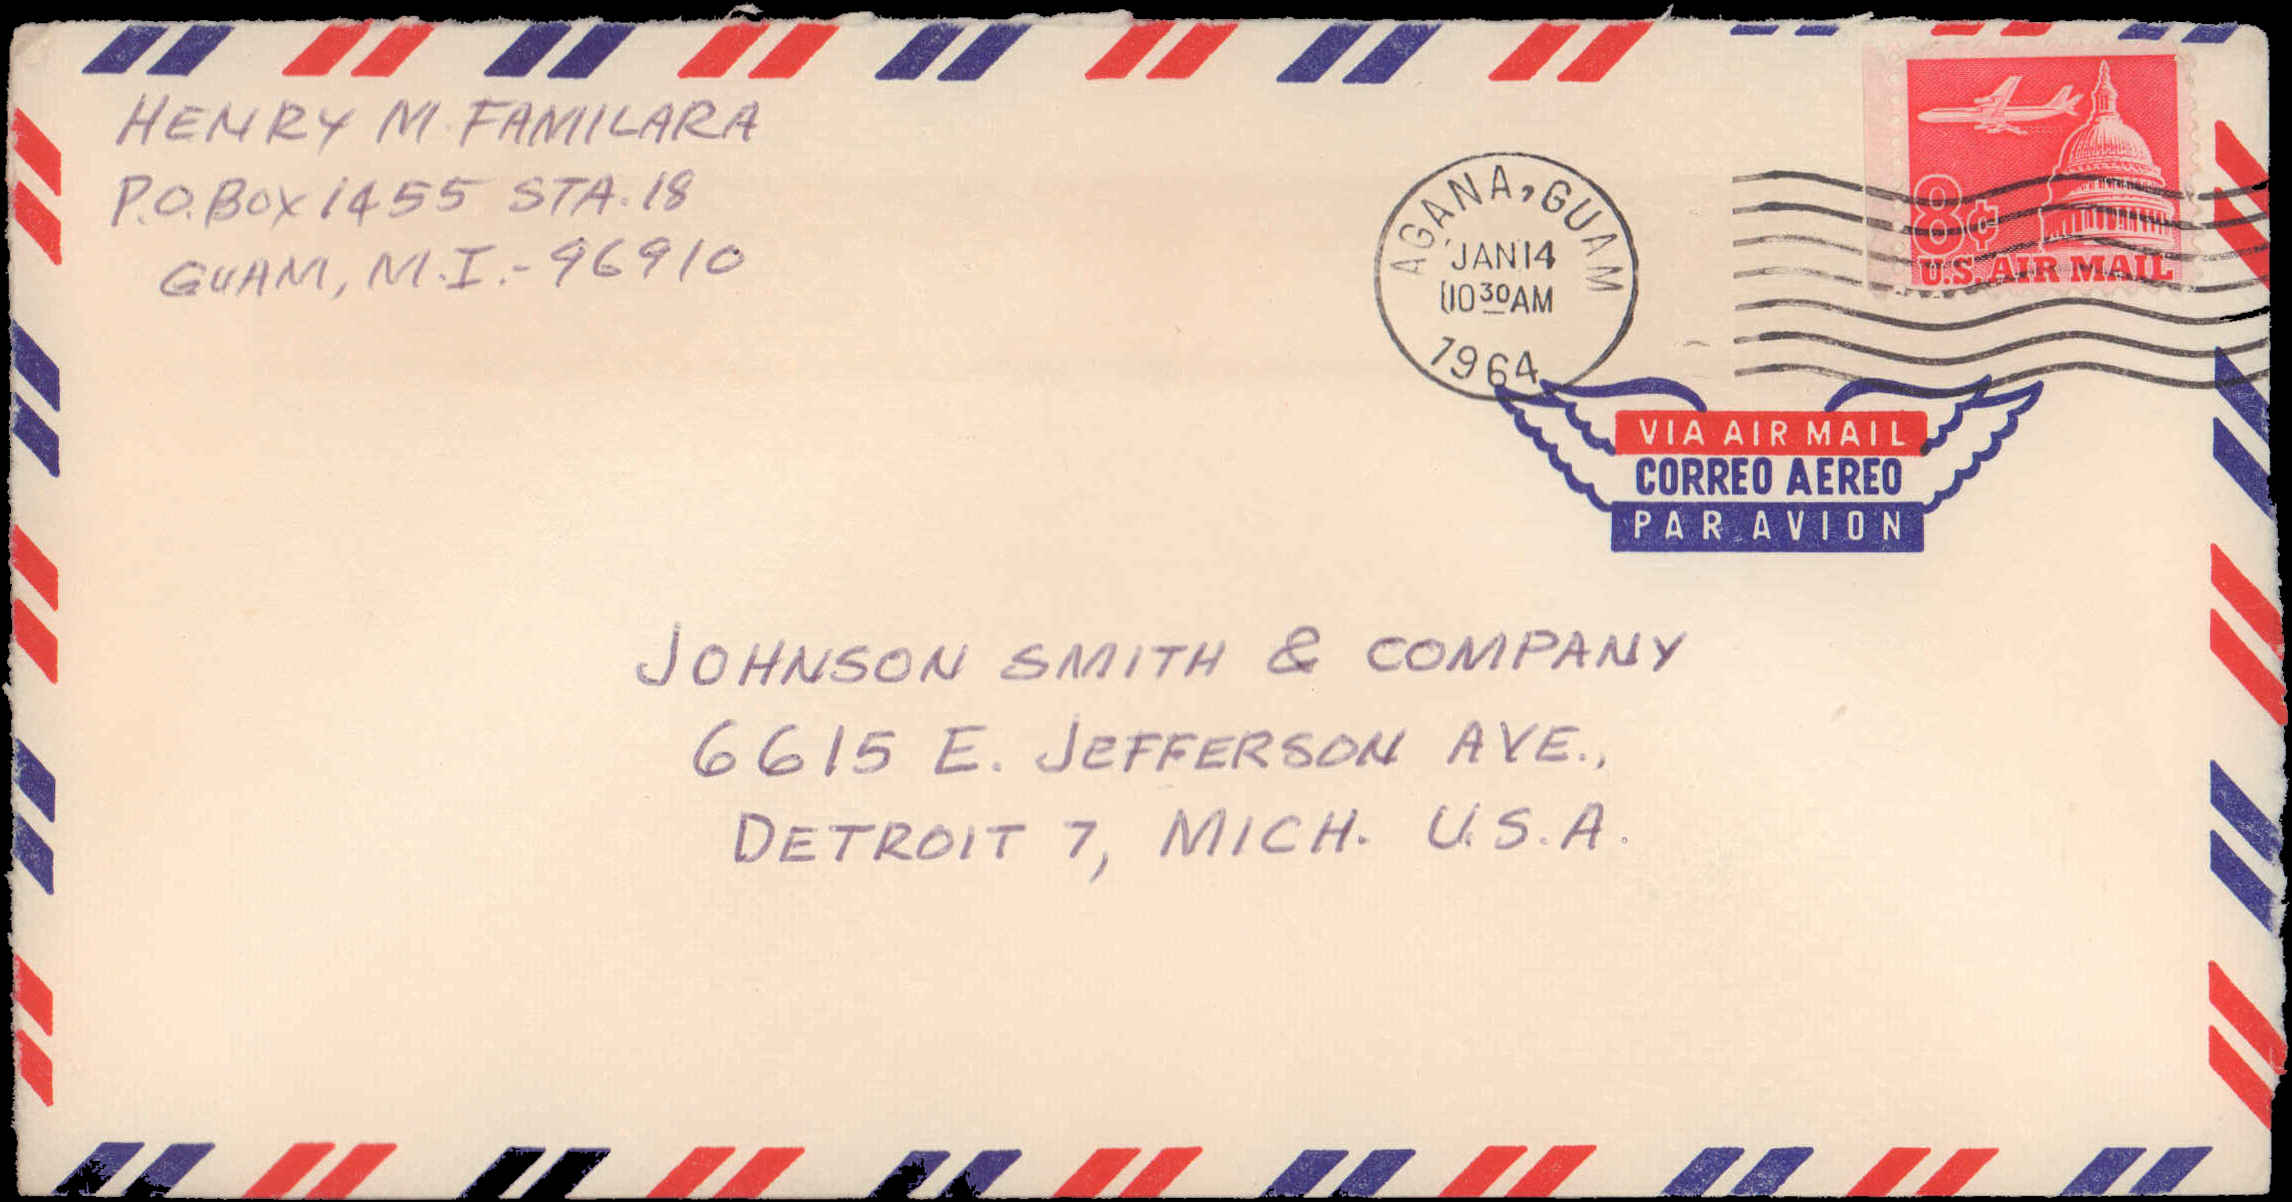 HENRY M. FAMILARA
P.O. BOX 1455 STA. 18
GUAM, M.I. - 96910
AGANA, GUAM
JAN 14
10 30 AM
1964
8¢
U.S. AIR MAIL
VIA AIR MAIL
CORREO AEREO
PAR AVION
JOHNSON SMITH & COMPANY
6615 E. JEFFERSON AVE.,
DETROIT 7, MICH. U.S.A.